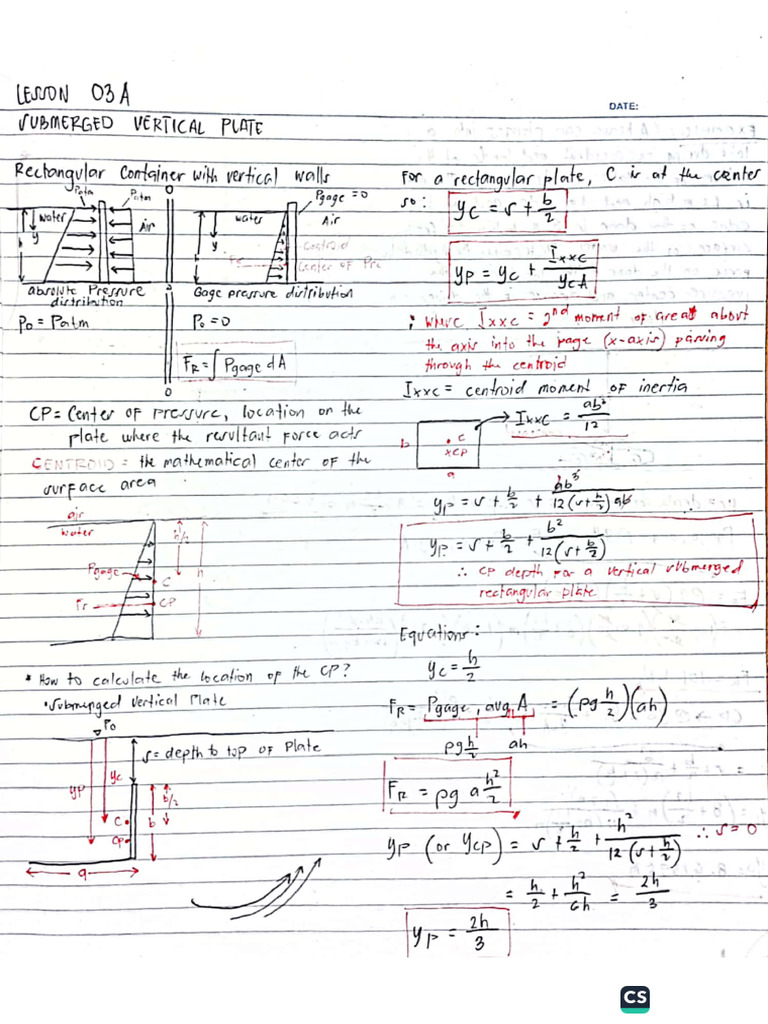 LESSON 03A
DATE:
SUBMERGED VERTICAL PLATE
Rectangular Container with vertical walls
Patm
Patm
water
y
Air
h
absolute Pressure
distribution
P₀ = Patm
Pgage = 0
water
Air
y
Centroid
Center of Pre
FR
Gage pressure distribution
P₀ = 0
FR = ∫ Pgage dA
CP = Center of Pressure, location on the
plate where the resultant force acts
CENTROID = the mathematical center of the
surface area
air
water
h/2
h
Pgage
C
Fr
CP
* How to calculate the location of the CP?
• Submenged Vertical Plate
P₀
s = depth to top of Plate
yP
yc
b/2
b
C
CP
a
For a rectangular plate, C is at the center
so: yc = s + b/2
yp = yc + Ixxc / ycA
: where Ixxc = 2nd moment of area about
the axis into the page (x-axis) passing
through the centroid
Ixxc = centroid moment of inertia
b
C
xCP
a
Ixxc = ab³/12
yp = s + b/2 + ab³ / 12(s + b/2)ab
yp = s + b/2 + b² / 12(s + b/2)
∴ CP depth for a vertical submerged
rectangular plate
Equations:
yc = h/2
FR = Pgage, avg A = (ρg h/2)(ah)
ρg h/2 ah
FR = ρg a h²/2
yp (or ycp) = s + h/2 + h² / 12(s + h/2) ∴ s = 0
= h/2 + h²/6h = 2h/3
yp = 2h/3
CS